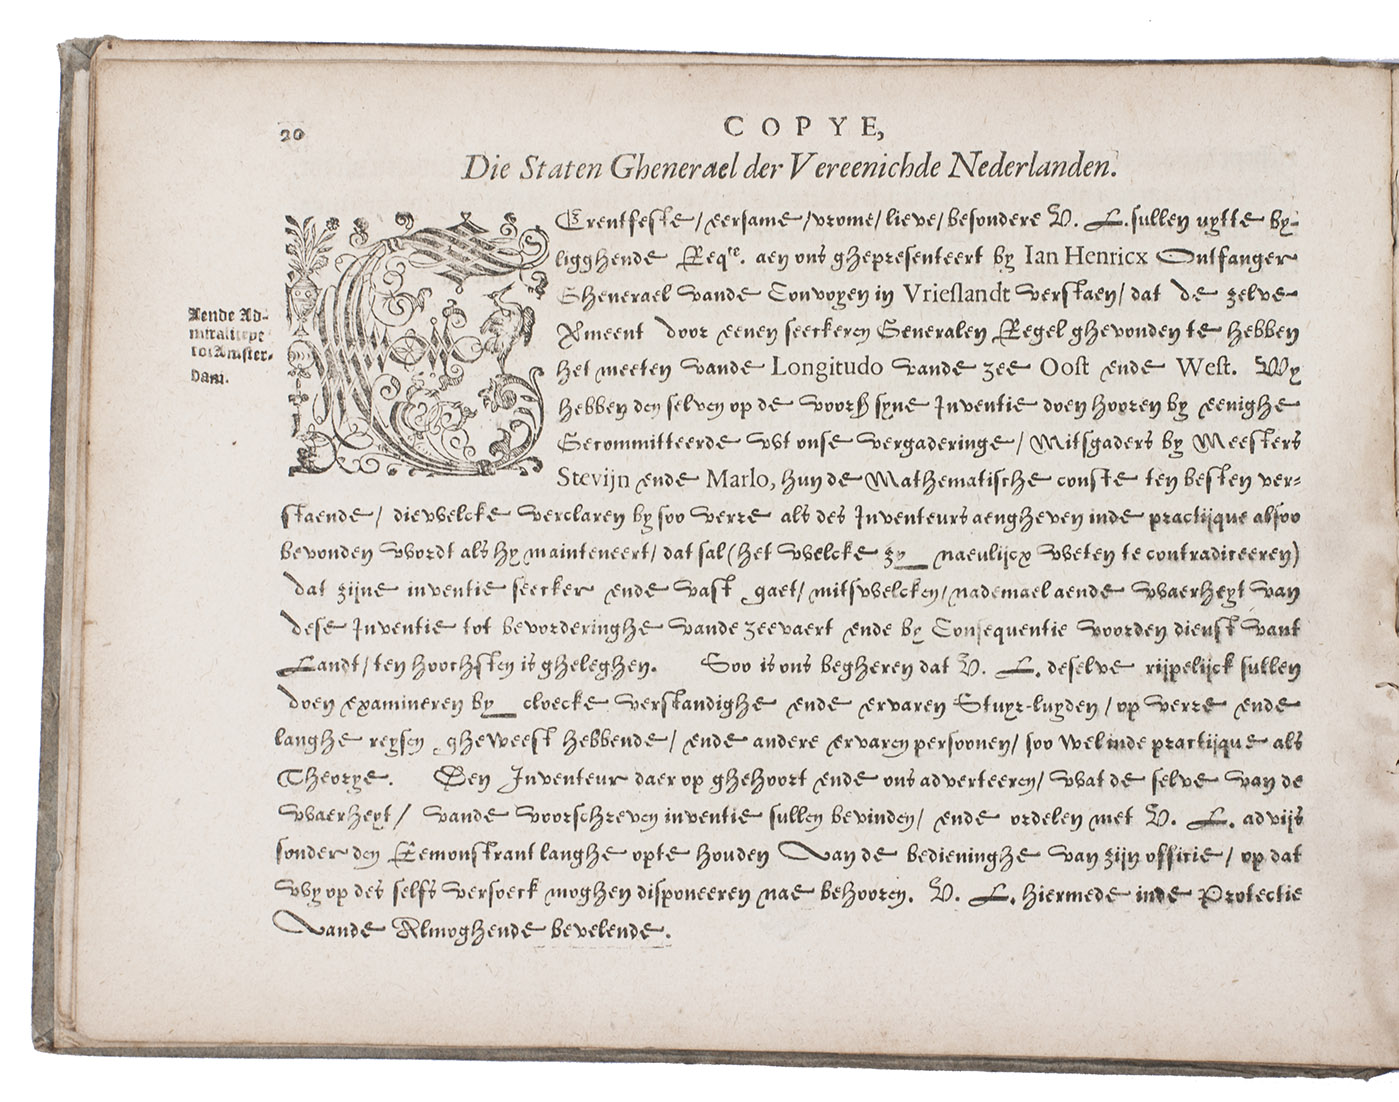 20
COPYE,
Die Staten Ghenerael der Vereenichde Nederlanden.
Aende Ad-
miraliteyt
tot Amster-
dam.
Erentfeste/ eersame/ vrome/ lieve/ besondere V. L. sullen uytte by-
ligghende Reqte. aen ons ghepresenteert by Ian Henricx Ontfanger
Ghenerael vande Convoyen in Vrieslandt verstaen/ dat de zelve
Vmeent door eenen seeckeren Generalen Regel ghevonden te hebben
het meeten vande Longitudo vande zee Oost ende West. Wy
hebben den selven op de voorß syne Inventie doen hooren by eenighe
Gecommitteerde wt onse vergaderinghe/ Mitsgaders by Meesters
Stevijn ende Marlo, hun de Mathematische conste ten besten ver-
staende/ die vvelcke verclaren by soo verre als des Inventeurs aengheven inde practijque alsoo
bevonden vvordt als hy mainteneert/ dat sal (het vvelcke zy naeulijcx vveten te contradiceeren)
dat zijne inventie seecker ende vast gaet/ mitsvvelcken/ nademael aende vvaerheyt van
dese Inventie tot bevorderinghe vande zeevaert ende by Consequentie voorden dienst vant
Landt/ ten hoochsten is gheleghen. Soo is ons begheren dat V. L. deselve rijpelijck sullen
doen examineren by cloecke verstandighe ende ervaren Stuyr-luyden/ op verre ende
langhe reysen gheweest hebbende/ ende andere ervaren persoonen/ soo wel inde practijque als
Theorye. Den Inventeur daer op ghehoort ende ons adverteeren/ vvat de selve van de
vvaerheyt/ vande voorschreven inventie sullen bevinden/ ende ordelen met V. L. advijs
sonder den Remonstrant langhe opte houden Van de bedieninghe van zijn officie/ op dat
vvy op des selfs versoeck moghen disponeeren nae behooren. V. L. hiermede inde Protectie
Vande Almoghende bevelende.